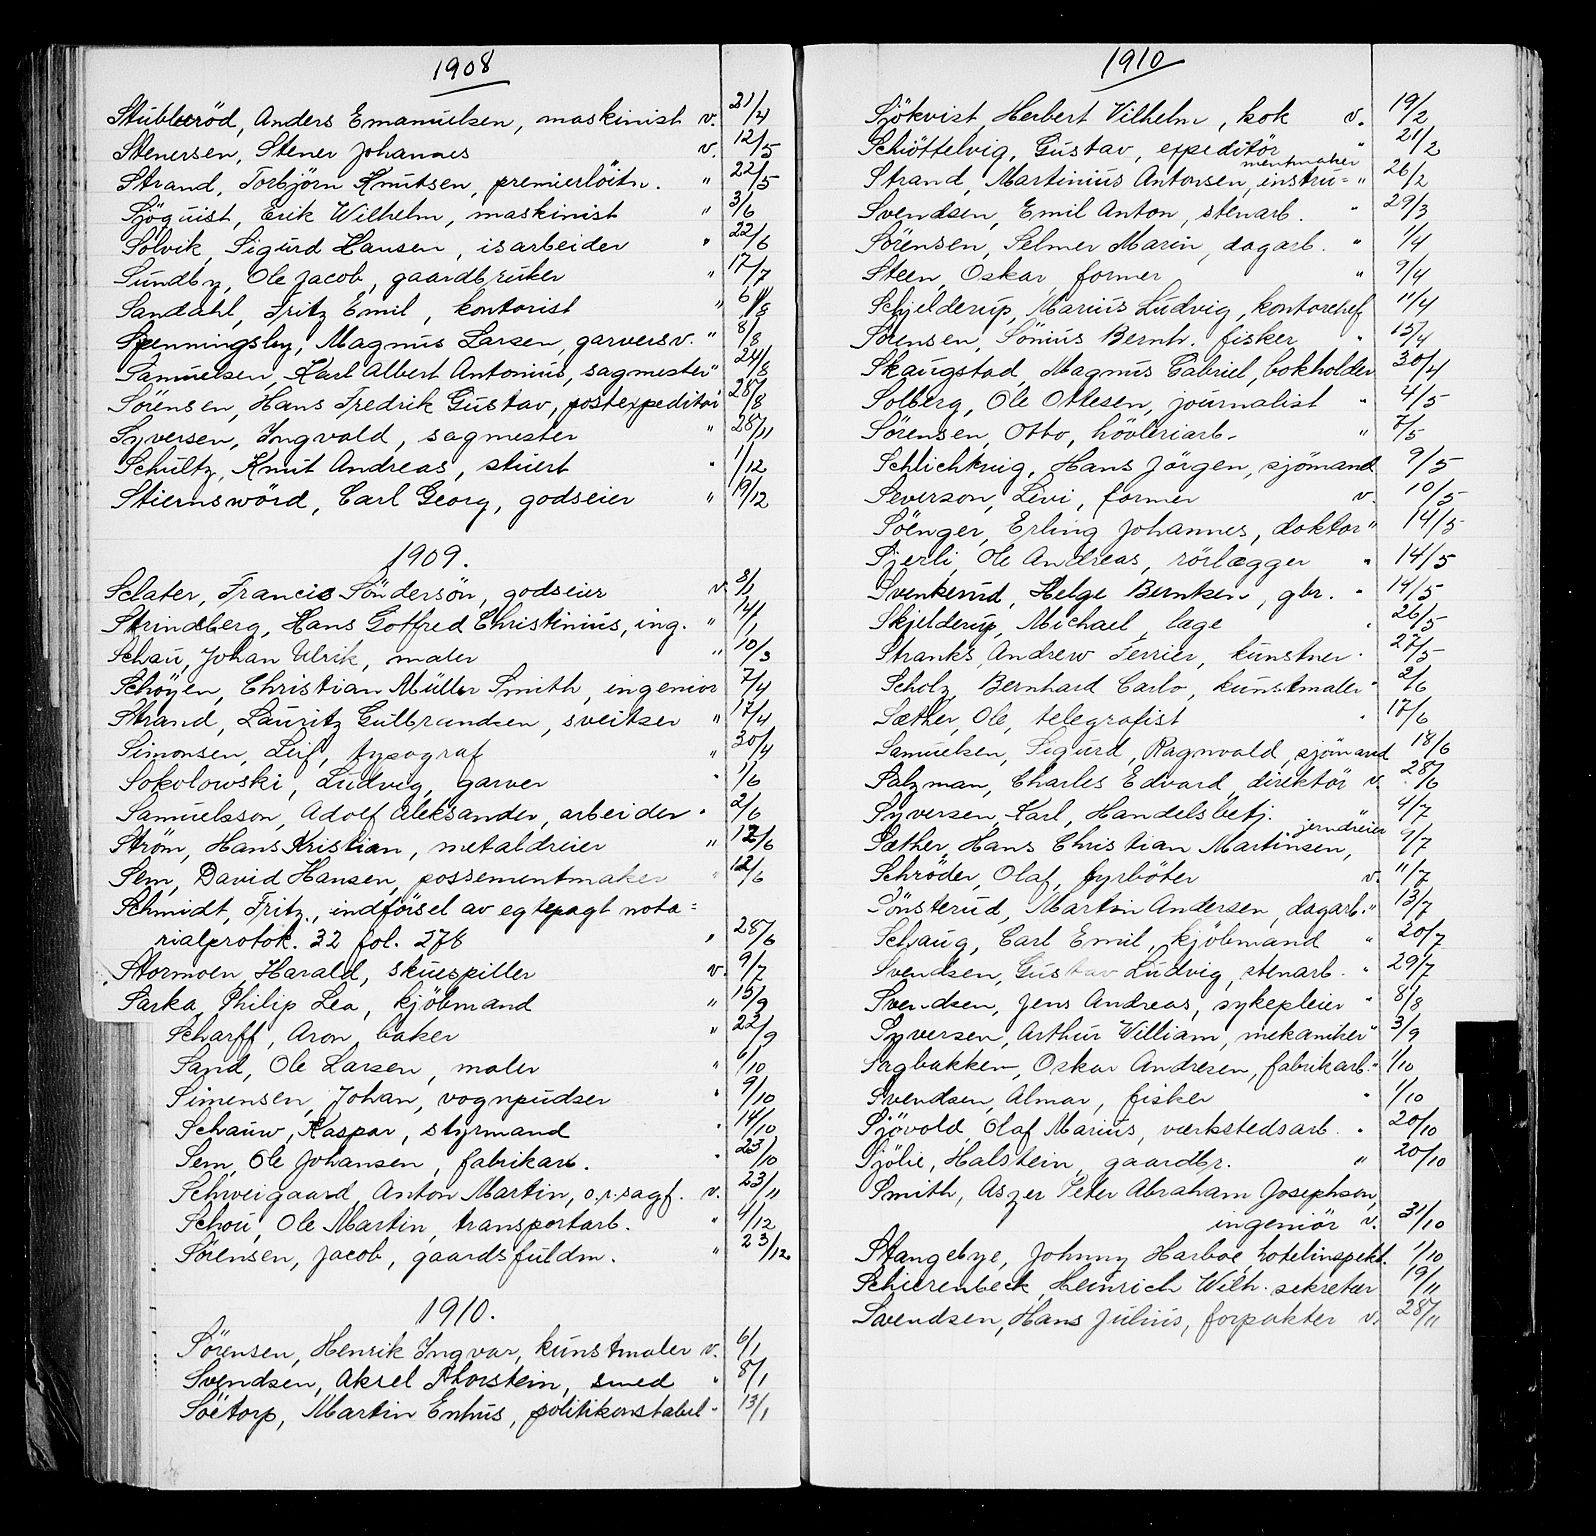 1908
Stubberöd, Anders Emanuelsen, maskinist v. 21/4
Stenersen, Stener Johannes v. 12/5
Strand, Torbjörn Knutsen, premierlöitn. " 22/5
Sjöquist, Erik Wilhelm, maskinist " 3/6
Solvik, Sigurd Hansen, isarbeider " 22/6
Sundby, Ole Jacob, gaardbruker " 17/7
Sandahl, Fritz Emil, kontorist " 6/8
Spenningsby, Magnus Larsen, garversv. " 8/8
Samuelsen, Karl Albert Antonius, sagmester " 24/8
Sörensen, Hans Fredrik Gustav, postexpeditör 28/8
Syversen, Ingvald, sagmester " 28/11
Schultz, Knut Andreas, stuert " 1/12
Stiernswörd, Carl Georg, godseier " 19/12
1909.
Sclater, Francis Söndersön, godseier v. 8/1
Strindberg, Hans Gotfred Christinius, ing. " 14/1
Schau, Johan Ulrik, maler " 10/3
Schöyen, Christian Müller Smith, ingeniör 7/4
Strand, Lauritz Gulbrandsen, sveitser " 17/4
Simonsen, Leif, typograf " 30/4
Sokolowski, Ludvig, garver " 1/6
Samuelsson, Adolf Aleksander, arbeider " 2/6
Ström, Hans Kristian, metaldreier " 12/6
Sem, David Hansen, possementmaker " 12/6
Schmidt, Fritz, indförsel av egtepagt nota=
rialprotok. 32 fol. 278 " 28/6
Stormoen, Harald, skuespiller v. 9/7
Sarka, Philip Lea, kjöbmand " 15/9
Scharff, Aron, baker " 22/9
Sand, Ole Larsen, maler " 6/10
Simensen, Johan, vognpudser " 9/10
Schauw, Kaspar, styrmand " 14/10
Sem, Ole Johansen, fabrikarb. " 23/10
Schweigaard, Anton Martin, o.r.sagf. v. 23/11
Schou, Ole Martin, transportarb. " 4/12
Sörensen, Jacob, gaardsfuldm. " 23/12
1910.
Sörensen, Henrik Ingvar, kunstmaler v. 6/1
Svendsen, Aksel Thorstein, smed " 8/1
Söetorp, Martin Enhus, politikonstabel " 13/1
1910
Sjökvist, Herbert Vilhelm, kok v. 19/2
Schöttelvig, Gustav, expeditör " 21/2
mentmaker
Strand, Martinius Antonsen, instru= " 26/2
Svendsen, Emil Anton, stenarb. " 29/3
Sörensen, Selmer Marin, dagarb. " 1/4
Steen, Oskar, former " 9/4
Schjelderup, Marius Ludvig, kontorchef 11/4
Sörensen, Sönius Bernh. fisker " 15/4
Skaugstad, Magnus Gabriel, bokholder 30/4
Solberg, Ole Ottesen, journalist " 4/5
Sörensen, Otto, hövleriarb. " 7/5
Schlichtkrug, Hans Jörgen, sjömand 9/5
Severson, Levi, former v. 10/5
Söenger, Erling Johannes, doktor " 14/5
Sjerli, Ole Andreas, rörlægger " 14/5
Svenkerud, Helge Berntsen, gbr. " 14/5
Skjelderup, Michael, læge " 26/5
Stranks, Andrew Ferrier, kunstner " 27/5
Scholz, Bernhard Carlo, kunstmaler " 2/6
Sæther, Ole, telegrafist " 17/6
Samuelsen, Sigurd, Ragnvald, sjömand 18/6
Salzman, Charles Edvard, direktör v. 28/6
Syversen, Karl, Handelsbetj. 4/7
jerndreier
Sæther, Hans Christian Martinsen, 9/7
Schröder, Olaf, fyrböter v. 11/7
Sönsterud, Martin Andersen, dagarb. " 13/7
Schaug, Carl Emil, kjöbmand " 20/7
Svendsen, Gustav Ludvig, stenarb. " 29/7
Svendsen, Jens Andreas, sykepleier " 8/8
Syversen, Arthur William, mekaniker " 3/9
Sagbakken, Oskar Andresen, fabrikarb. " 1/10
Svendsen, Almar, fisker " 1/10
Sjövold, Olaf Marius, værkstedsarb. " 20/10
Sjölie, Halstein, gaardbr. " 20/10
Smith, Aszer Peter Abraham Josephson,
ingeniör v. 31/10
Stangebye, Johnny Harboe, hotelinspekt. 1/10
Schierenbeck, Heinrich Wilh. sekretær 19/11
Svendsen, Hans Julius, forpakter v. 28/11